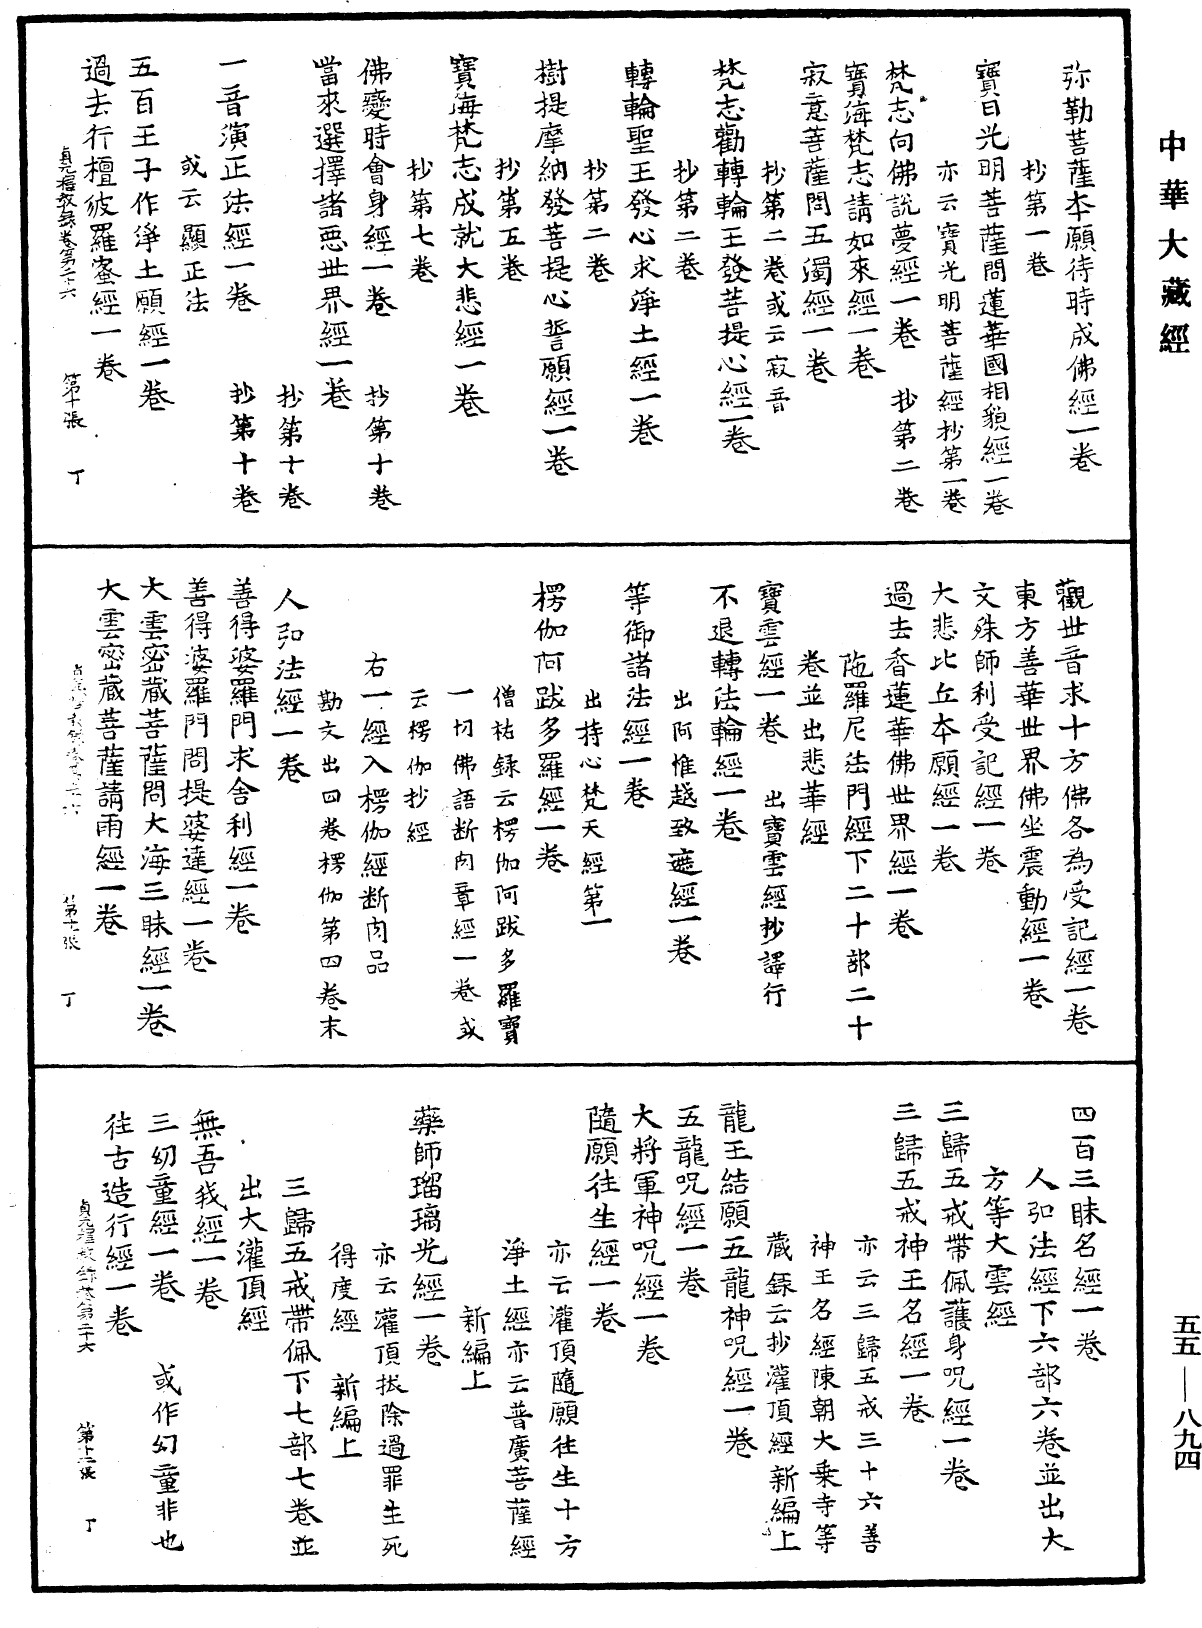 中華大藏經
弥勒菩薩本願待時成佛經一卷
抄第一卷
寶日光明菩薩問蓮華國相貌經一卷
亦云寶光明菩薩經抄第一卷
梵志向佛說夢經一卷　抄第二卷
寶海梵志請如來經一卷
寂意菩薩問五濁經一卷
抄第二卷或云寂音
梵志勸轉輪王發菩提心經一卷
抄第二卷
轉輪聖王發心求淨土經一卷
抄第二卷
樹提摩納發菩提心誓願經一卷
抄第五卷
寶海梵志成就大悲經一卷
抄第七卷
佛變時會身經一卷　抄第十卷
當來選擇諸惡世界經一卷
抄第十卷
一音演正法經一卷　抄第十卷
或云顯正法
五百王子作淨土願經一卷
過去行檀波羅蜜經一卷
貞元釋教錄卷第二十六　第十張　丁
觀世音求十方佛各為受記經一卷
東方善華世界佛坐震動經一卷
文殊師利受記經一卷
大悲比丘本願經一卷
過去香蓮華佛世界經一卷
陁羅尼法門經下二十部二十
卷並出悲華經
寶雲經一卷　出寶雲經抄譯行
不退轉法輪經一卷
出阿惟越致遮經一卷
等御諸法經一卷
出持心梵天經第一
楞伽阿跋多羅經一卷
僧祐錄云楞伽阿跋多羅寶
一切佛語断肉章經一卷或
云楞伽抄經
右一經入楞伽經断肉品
勘文出四卷楞伽第四卷末
人弘法經一卷
善得婆羅門求舍利經一卷
善得婆羅門問提婆達經一卷
大雲密藏菩薩問大海三昧經一卷
大雲密藏菩薩請雨經一卷
張　丁
四百三昧名經一卷
人弘法經下六部六卷並出大
方等大雲經
三歸五戒帶佩護身呪經一卷
三歸五戒神王名經一卷
亦云三歸五戒三十六善
神王名經陳朝大乗寺等
藏錄云抄灌頂經新編上
龍王結願五龍神呪經一卷
五龍呪經一卷
大將軍神呪經一卷
隨願往生經一卷
亦云灌頂隨願往生十方
淨土經亦云普廣菩薩經
新編上
藥師瑠璃光經一卷
亦云灌頂拔除過罪生死
得度經　新編上
三歸五戒帶佩下七部七卷並
出大灌頂經
無吾我經一卷
三幼童經一卷　或作幻童非也
往古造行經一卷
貞元釋教錄卷第二十六　第十二張　丁
五五—八九四